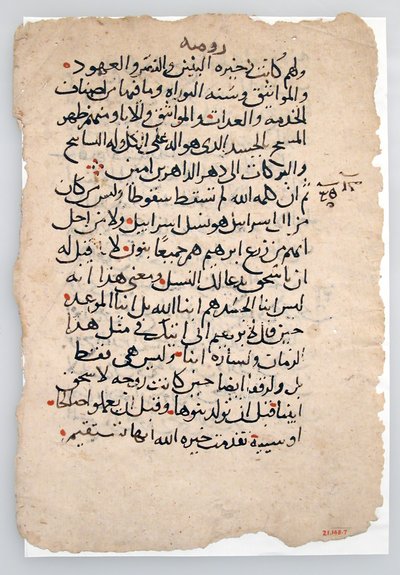 رومية
ولهم كانت ذخيره البنين والعهود
والمواثيق وسنه التوراه وما فيها من اصناف
الخدمه والعدات والمواثيق والابا ومنهم ظهر
المسيح الجسد الذي هو اله على الكل وله التسابيح
والبركات الى دهر الداهرين امين
ثم ان كلمه الله لم تسقط سقوطا وليس كل كان
من ال اسرايل هو نسل اسرايل ولا من اجل
انهم من زرع ابرهيم هم جميعا بنون لانه قيل له
ان اسحق يدعا لك النسل ومعنى هذا انه
ليس ابنا الجسد هم ابنا الله بل ابنا الموعد
حين قال الى اتيك في مثل هذا
الزمان ولساره ابنا وليس هي فقط
بل ورفقا ايضا حين كانت زوجه لاسحق
ابينا قبل ان يولد بنوها وقبل ان يعملو صلاحا
او سييه تقدمت خيره الله انها تستقيم
21.148.7